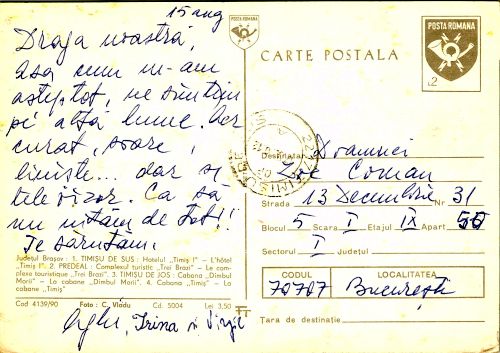 15 aug
Draga noastră,
Așa cum m-am
așteptat, ne simțim
pe altă lume. Aer
curat, soare,
liniște... dar și
televizor. Ca să
nu uităm de tot!!
Te sărutăm.
Județul Brașov: 1. TIMIȘU DE SUS: Hotelul "Timiș I" — L'hôtel
"Timiș I". 2. PREDEAL: Complexul turistic "Trei Brazi" — Le com-
plexe touristique "Trei Brazi". 3. TIMIȘU DE JOS: Cabana "Dîmbul
Morii" — La cabane "Dîmbul Morii". 4. Cabana "Timiș" — La
cabane "Timiș"
Cod 4139/90 Foto: C. Vladu Cd. 5004 Lei 3,50
Irina și Virgil
POSTA ROMANA
CARTE POSTALA
POSTA ROMANA
2
Destinatar Doamnei
Zoe Coman
Strada 13 Decembrie Nr 31
Blocul 5 Scara I Etajul IX Apart 50
Sectorul I Județul
CODUL LOCALITATEA
70707 București
Țara de destinație